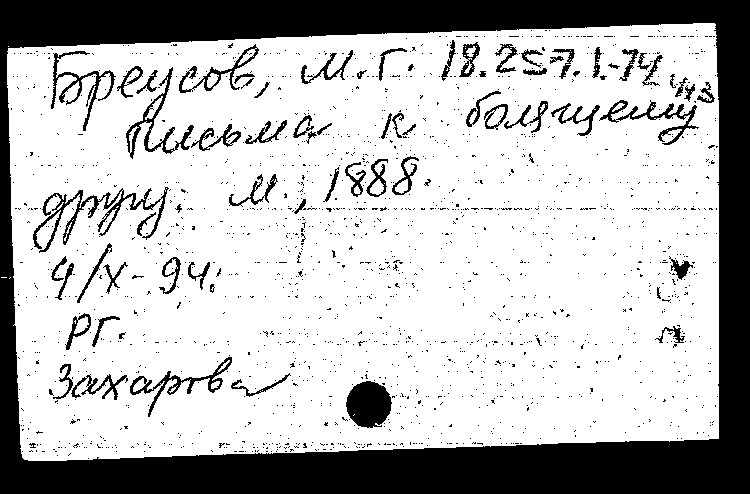 Бреусов, М. Г. 18.257.1.-74
Письма к болящему
другу. М., 1888.
4/X- 94.
РГ.
Захарова